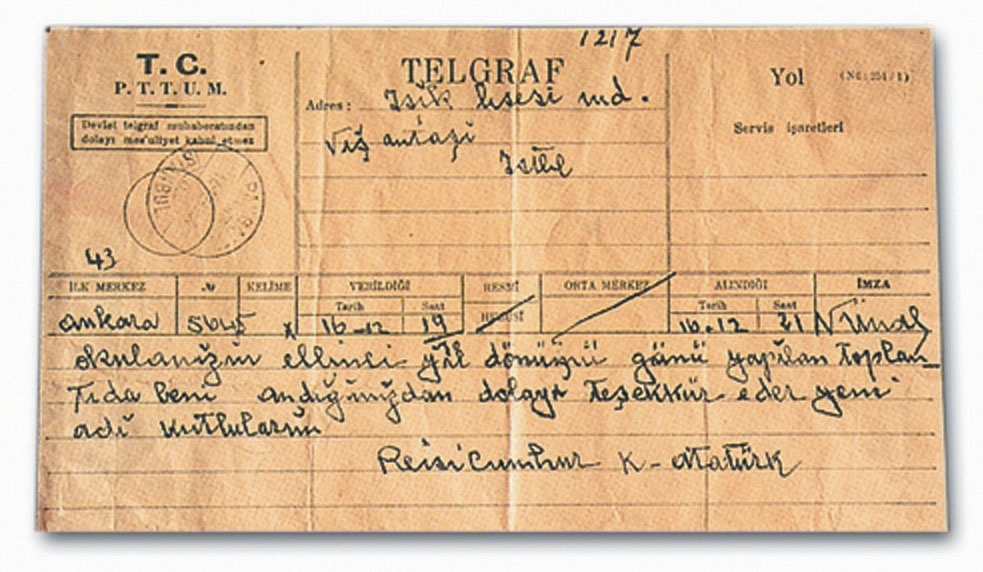 1217
T. C.
P. T. T. U. M.
Devlet telgraf muhaberatından
dolayı mes'uliyet kabul etmez
TELGRAF
Adres : Işik lisesi md.
Niş antaşi
İstbl
Yol
Servis işaretleri
İSTANBUL
43
İLK MERKEZ № KELİME VERİLDİĞİ RESMÎ ORTA MERKEZ ALINDIĞI İMZA
Tarih Saat HUSUSİ Tarih Saat
ankara x 16-12 19 16.12 21
okulunuzun ellinci yıl dönümü günü yapılan toplan
tıda beni andığınızdan dolayı teşekkür eder yeni
adı kutlularım
Reisicumhur K-atatürk